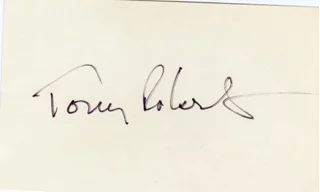 Tony Roberts